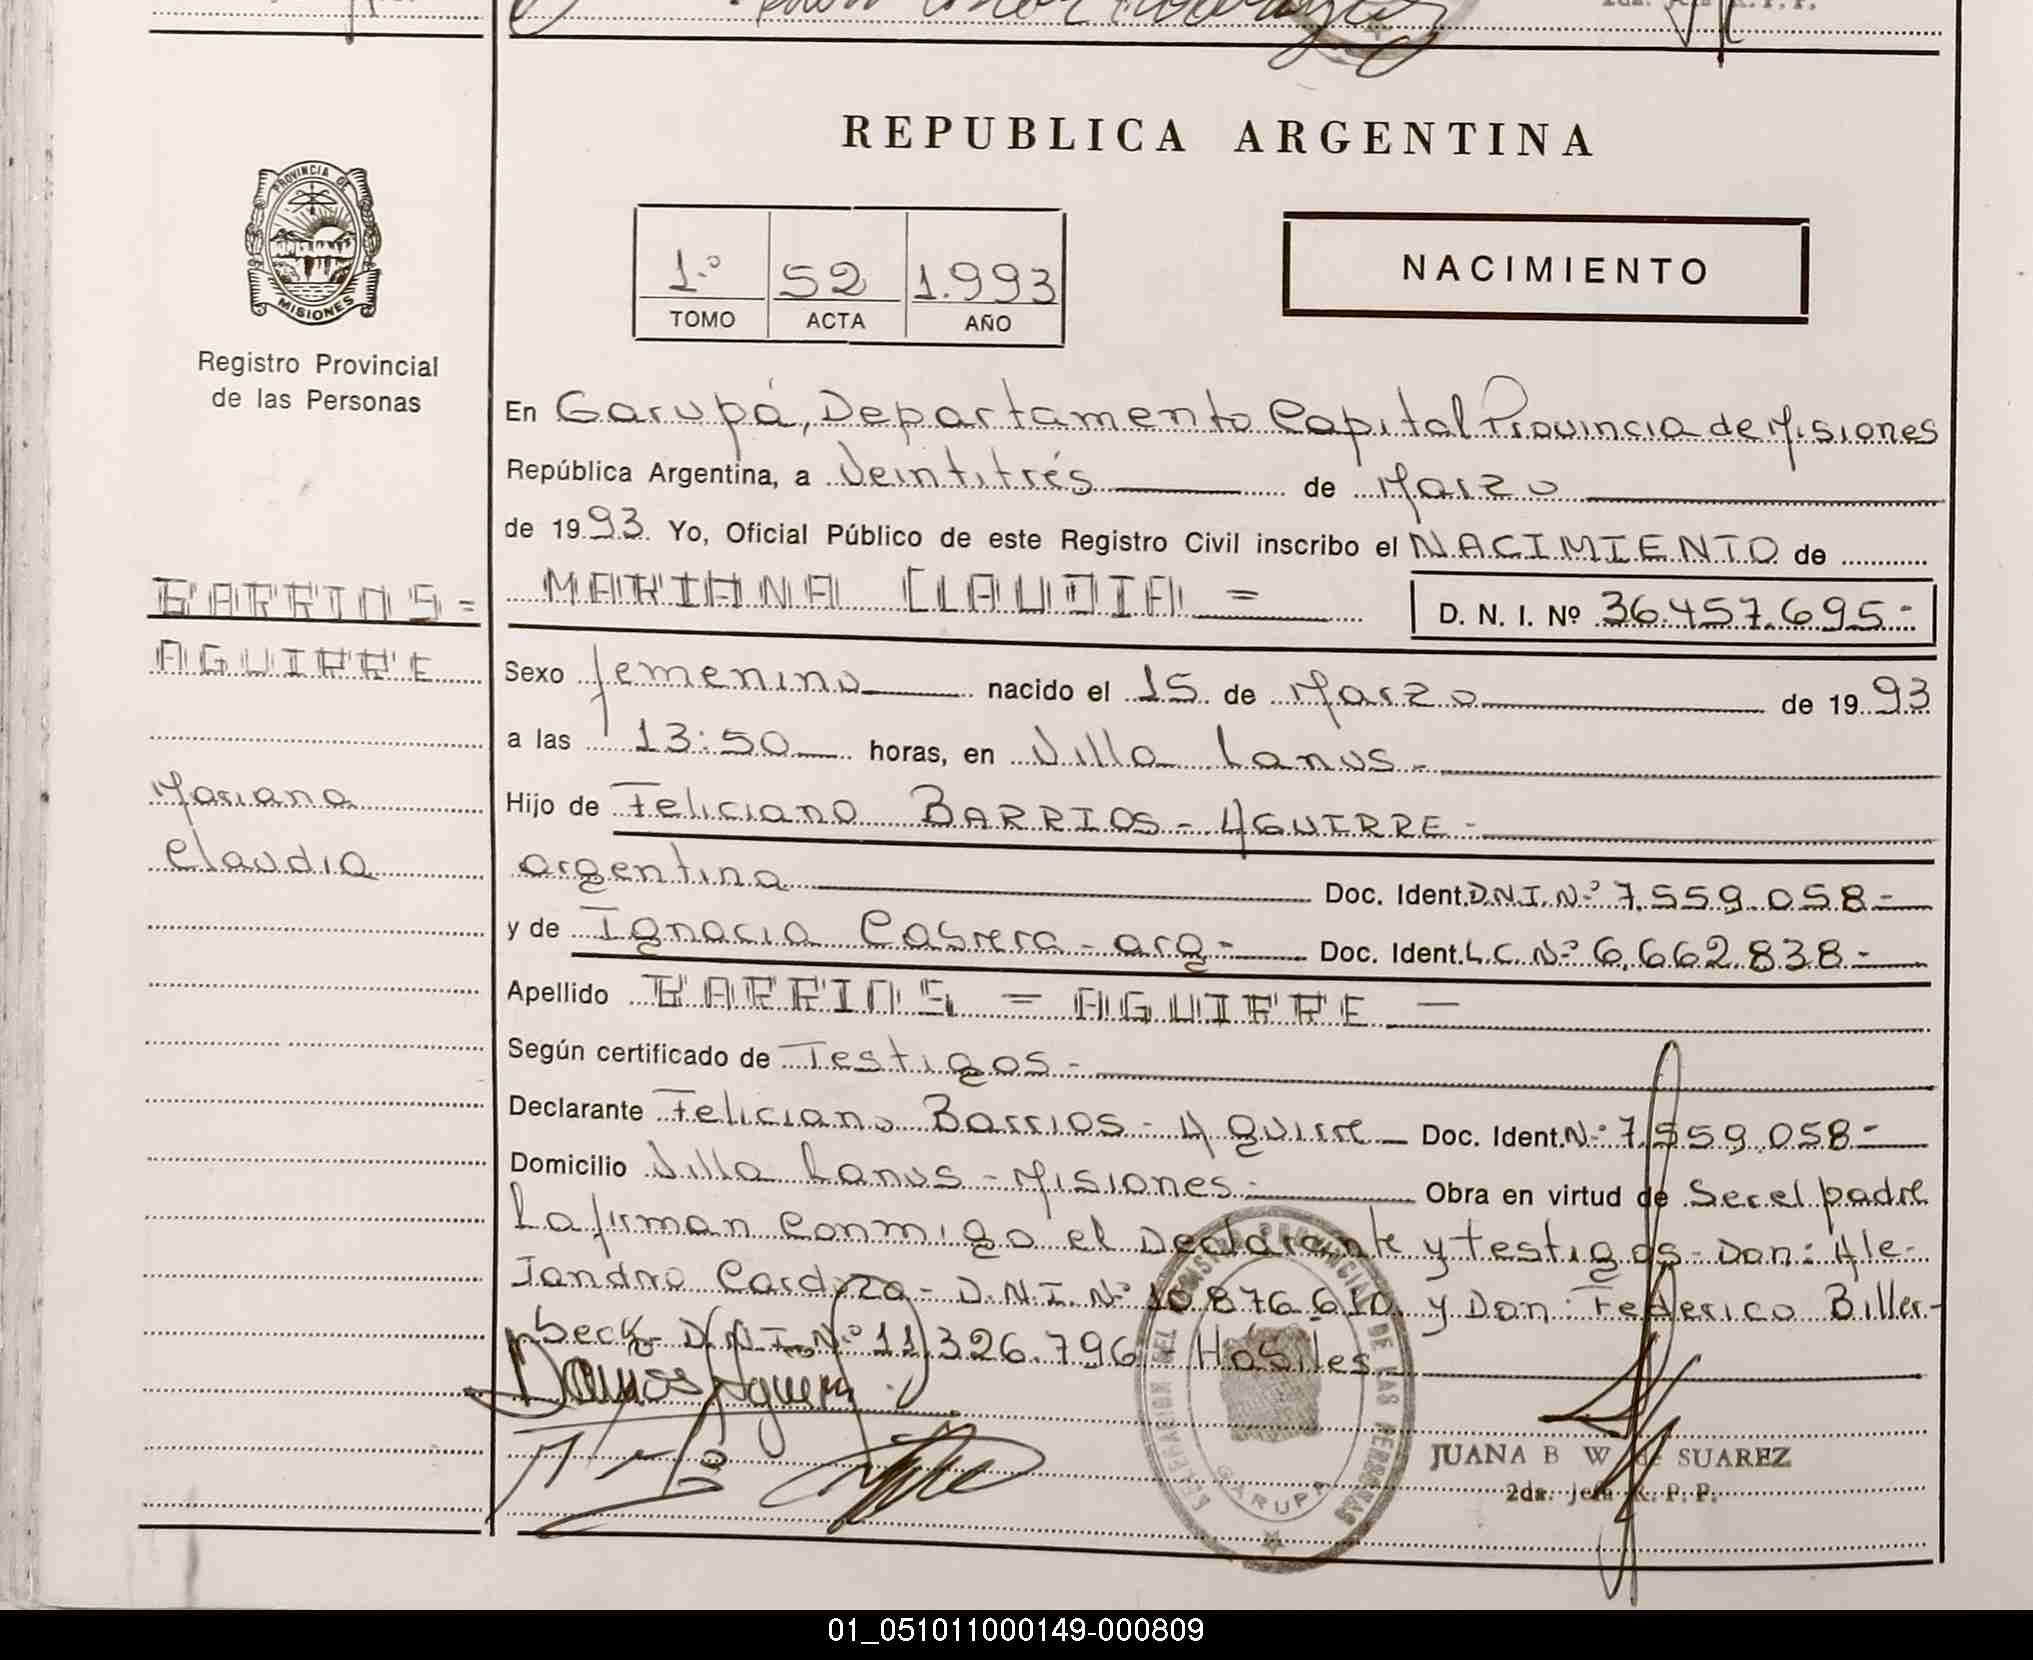 REPUBLICA ARGENTINA
PROVINCIA DE
MISIONES
Registro Provincial
de las Personas
1.º 52 1.993
TOMO ACTA AÑO
NACIMIENTO
En Garupá, Departamento Capital Provincia de Misiones
República Argentina, a Veintitrés de Marzo
de 1993. Yo, Oficial Público de este Registro Civil inscribo el NACIMIENTO de
BARRIOS =
AGUIRRE
MARIANA CLAUDIA =
D. N. I. Nº 36.457.695-
Sexo femenino nacido el 15 de Marzo de 1993
a las 13:50 horas, en Villa Lanus-
Mariana
Claudia
Hijo de Feliciano BARRIOS - AGUIRRE -
argentina Doc. Ident. D.N.I. Nº 7.559.058-
y de Ignacia Cabrera - arg - Doc. Ident. L.C. Nº 6.662.838-
Apellido BARRIOS = AGUIRRE —
Según certificado de Testigos -
Declarante Feliciano Barrios - Aguirre Doc. Ident. Nº 7.559.058-
Domicilio Villa Lanus - Misiones - Obra en virtud de Ser el padre
La firman conmigo el Declarante y testigos - Don: Ale-
Jandro Cardozo - D.N.I. Nº 10.876.610 y Don: Federico Biller-
beck - D.N.I. Nº 11.326.796 - Hábiles
PROVINCIAL DE LAS PERSONAS
GARUPA
JUANA B W de SUAREZ
2da. Jefa R. P. P.
01_051011000149-000809